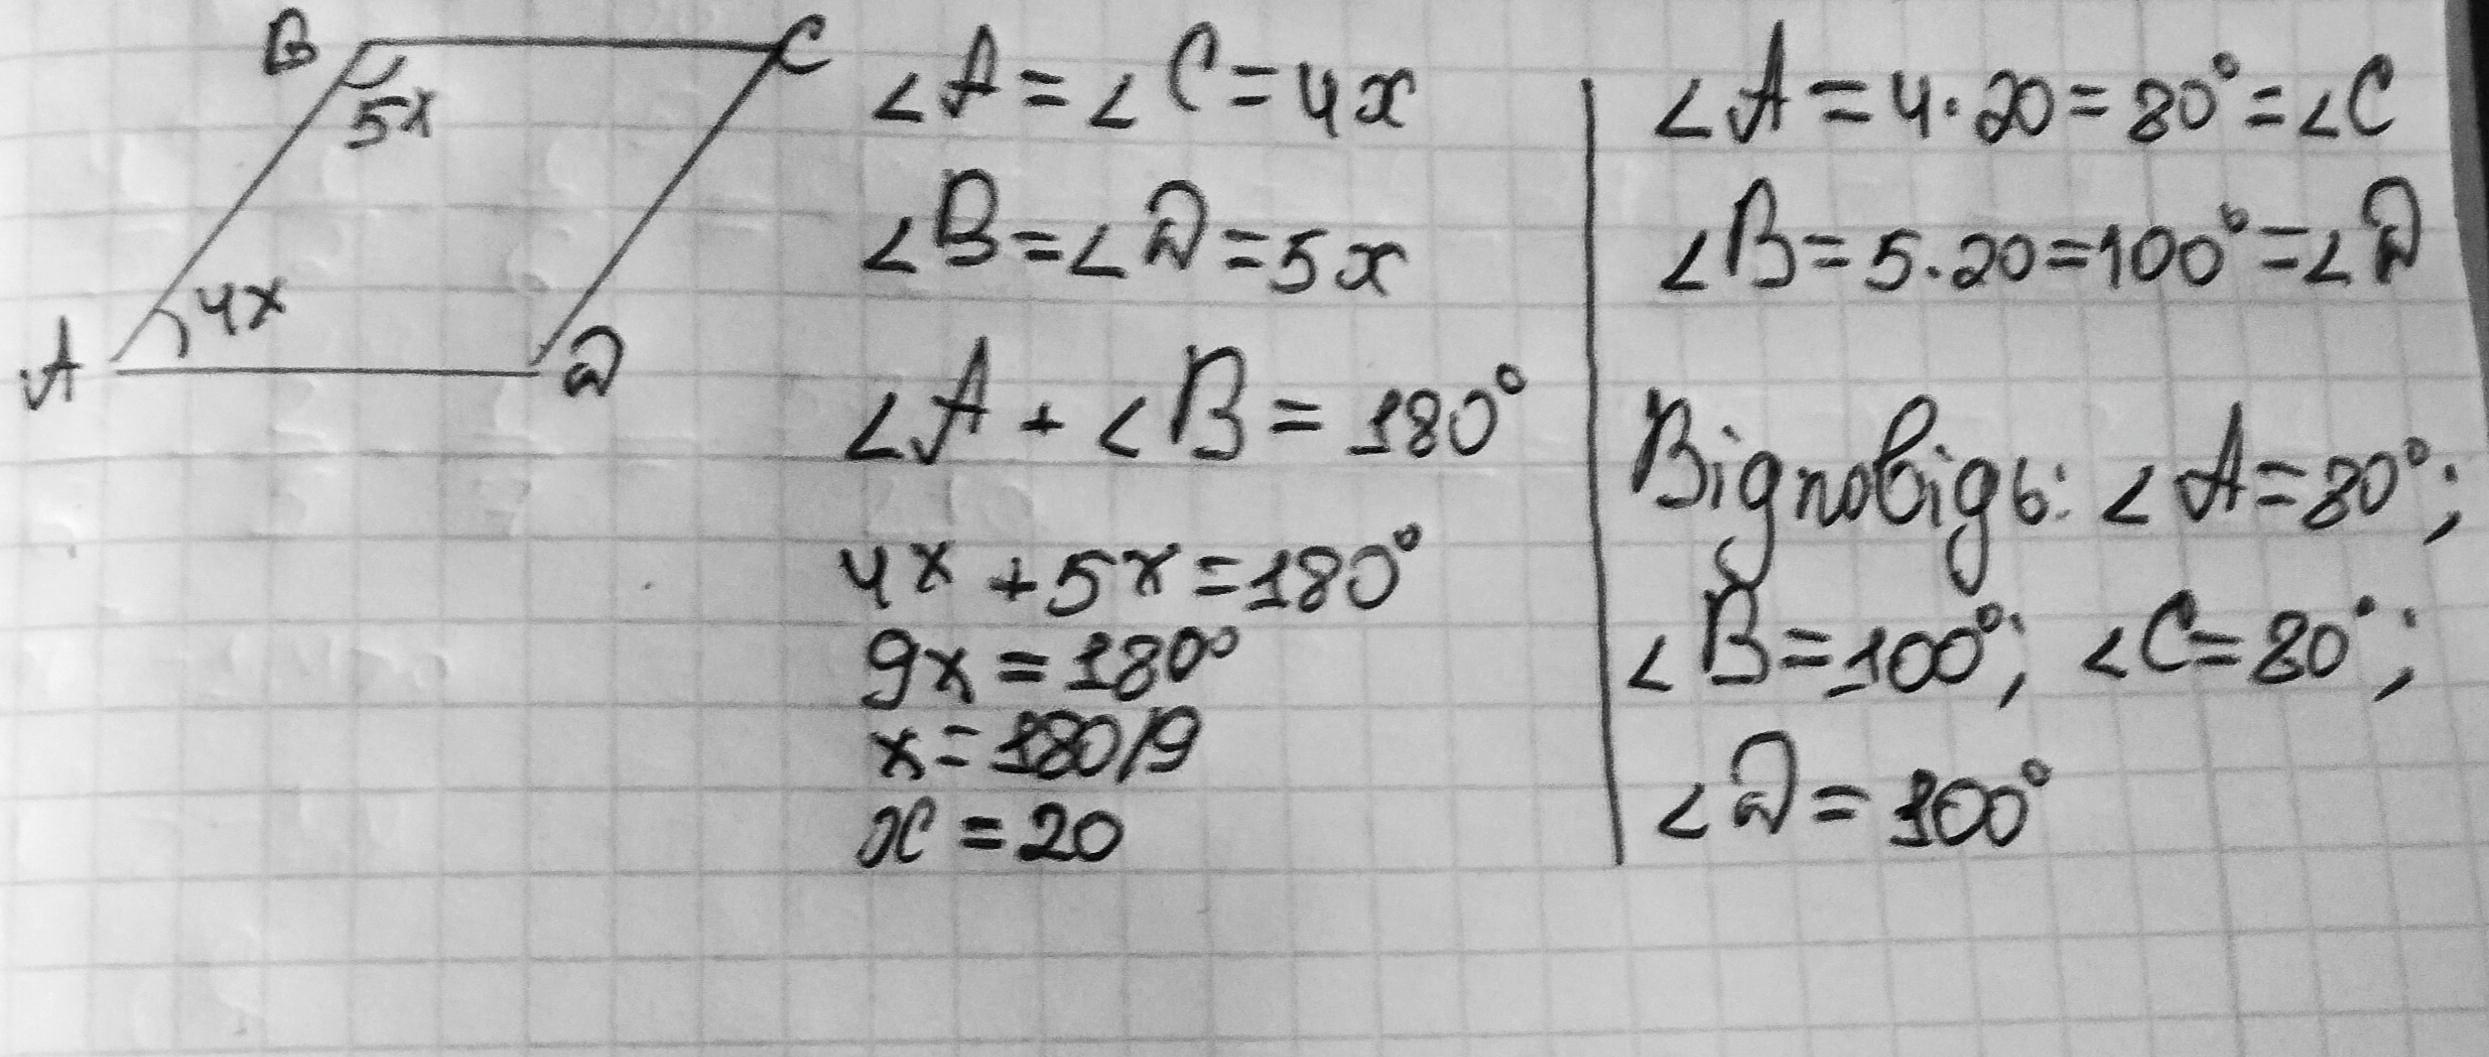 B
C
5x
4x
A
D
∠A=∠C=4x
∠B=∠D=5x
∠A+∠B=180°
4x+5x=180°
9x=180°
x=180/9
x=20
∠A=4·20=80°=∠C
∠B=5·20=100°=∠D
Відповідь: ∠A=80°;
∠B=100°; ∠C=80°;
∠D=100°